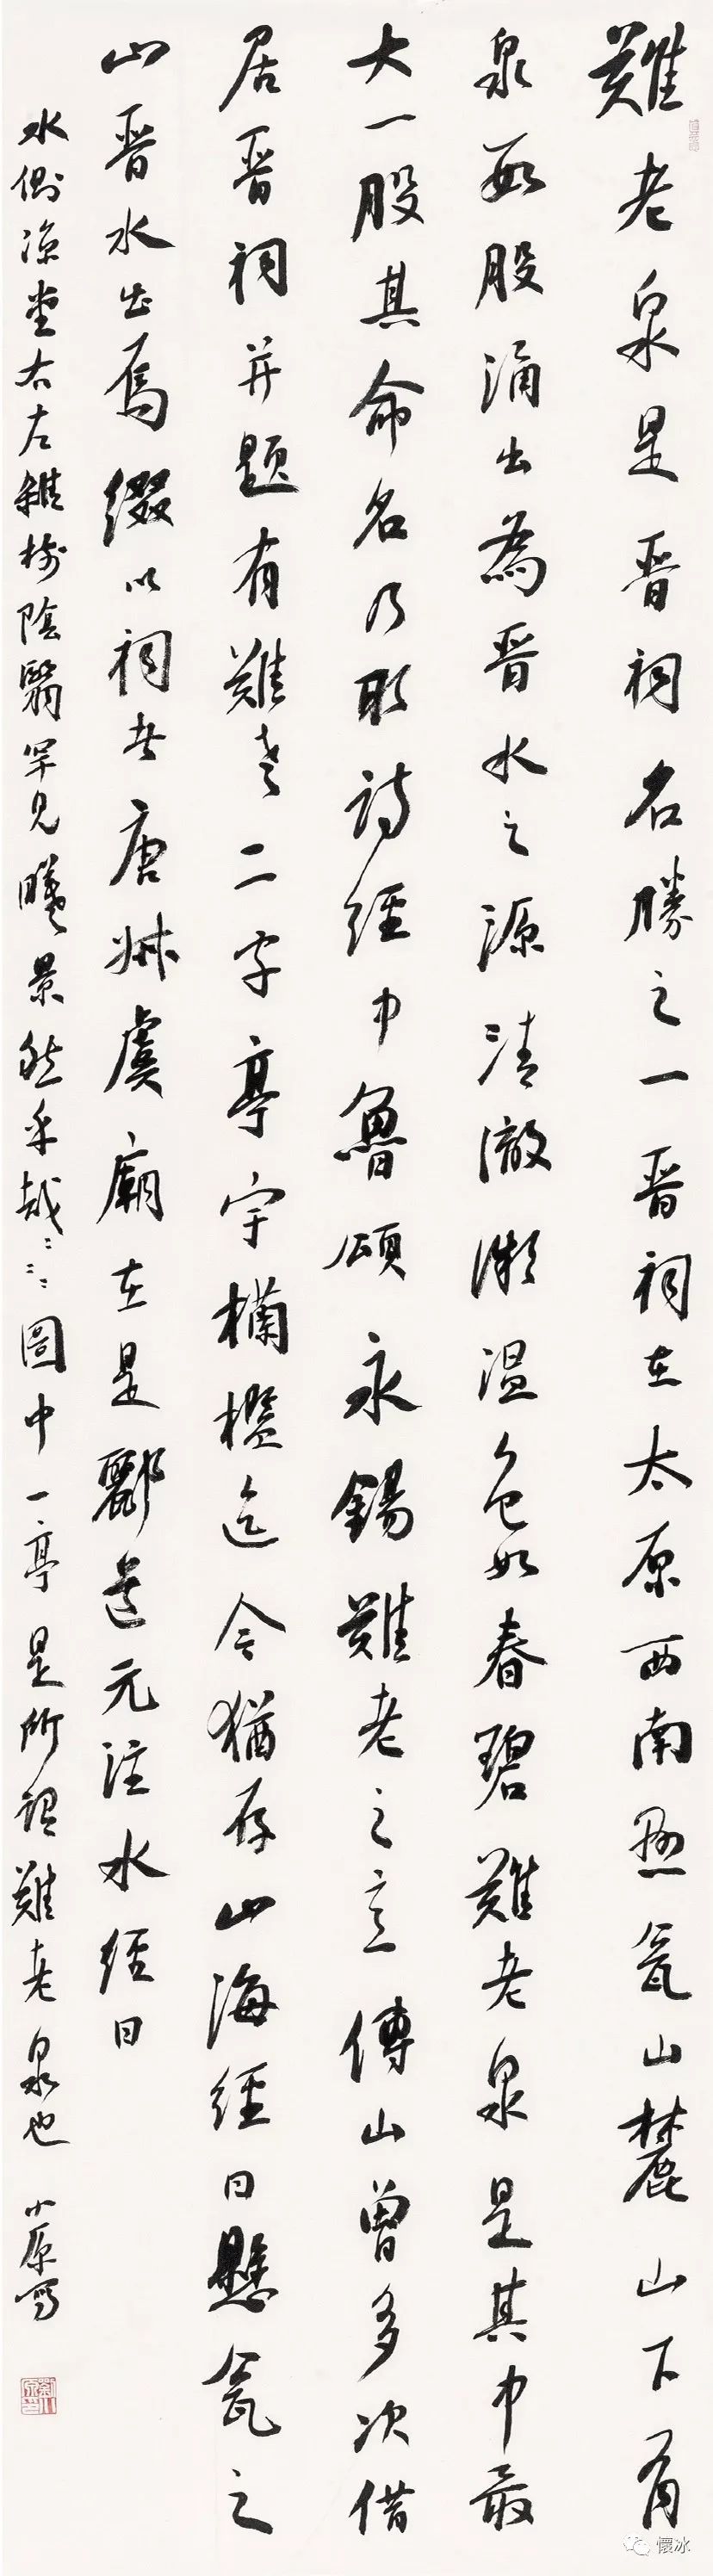 難老泉是晋祠名勝之一晋祠在太原西南悬瓮山麓山下有
泉数股涌出為晋水之源清澈微温色如春碧難老泉是其中最
大一股其命名乃取詩經中魯頌永錫難老之意傅山曾多次借
居晋祠并題有難老二字亭宇欄檻迄今猶存山海經曰懸瓮之
山晋水出焉缀以祠者唐叔虞廟在是酈道元注水經曰
水側凉堂右左雜樹陰翳罕見曦景然乎哉圖中一亭是所謂難老泉也 小原寫
懷冰